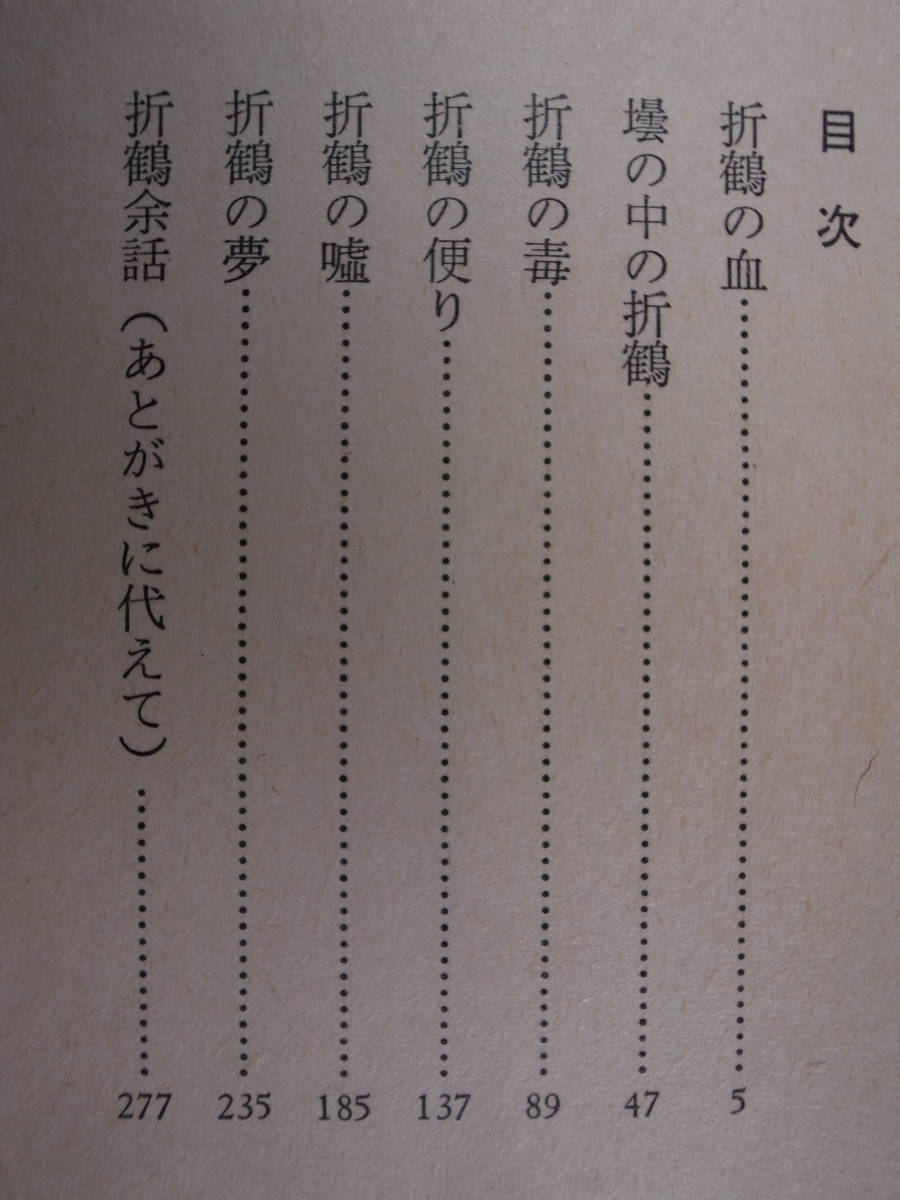 目次
折鶴の血……………………5
壜の中の折鶴……………………47
折鶴の毒……………………89
折鶴の便り……………………137
折鶴の嘘……………………185
折鶴の夢……………………235
折鶴余話（あとがきに代えて）……………………277